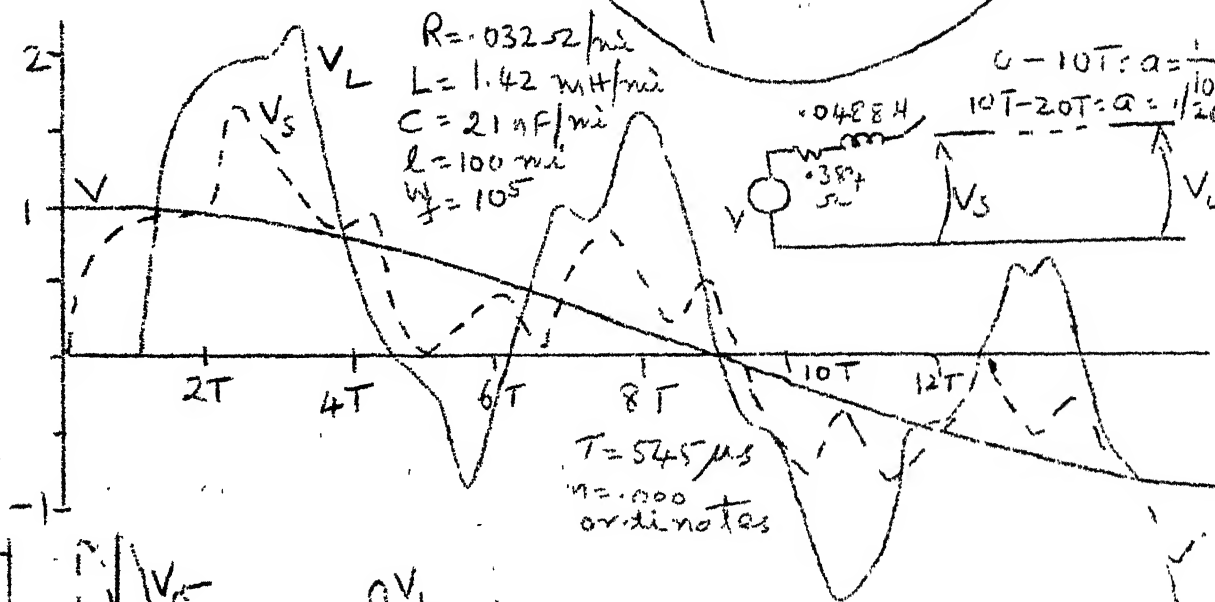 2
V_L
V_S
V
1
-1
R=.032Ω/mi
L=1.42 mH/mi
C=21 nF/mi
l=100 mi
=10⁵
0-10T: a=1/10
10T-20T: a=1/20
.0488H
Ω
V
V_S
2T
4T
6T
8T
10T
12T
T=545 μs
n=.000
ordinates